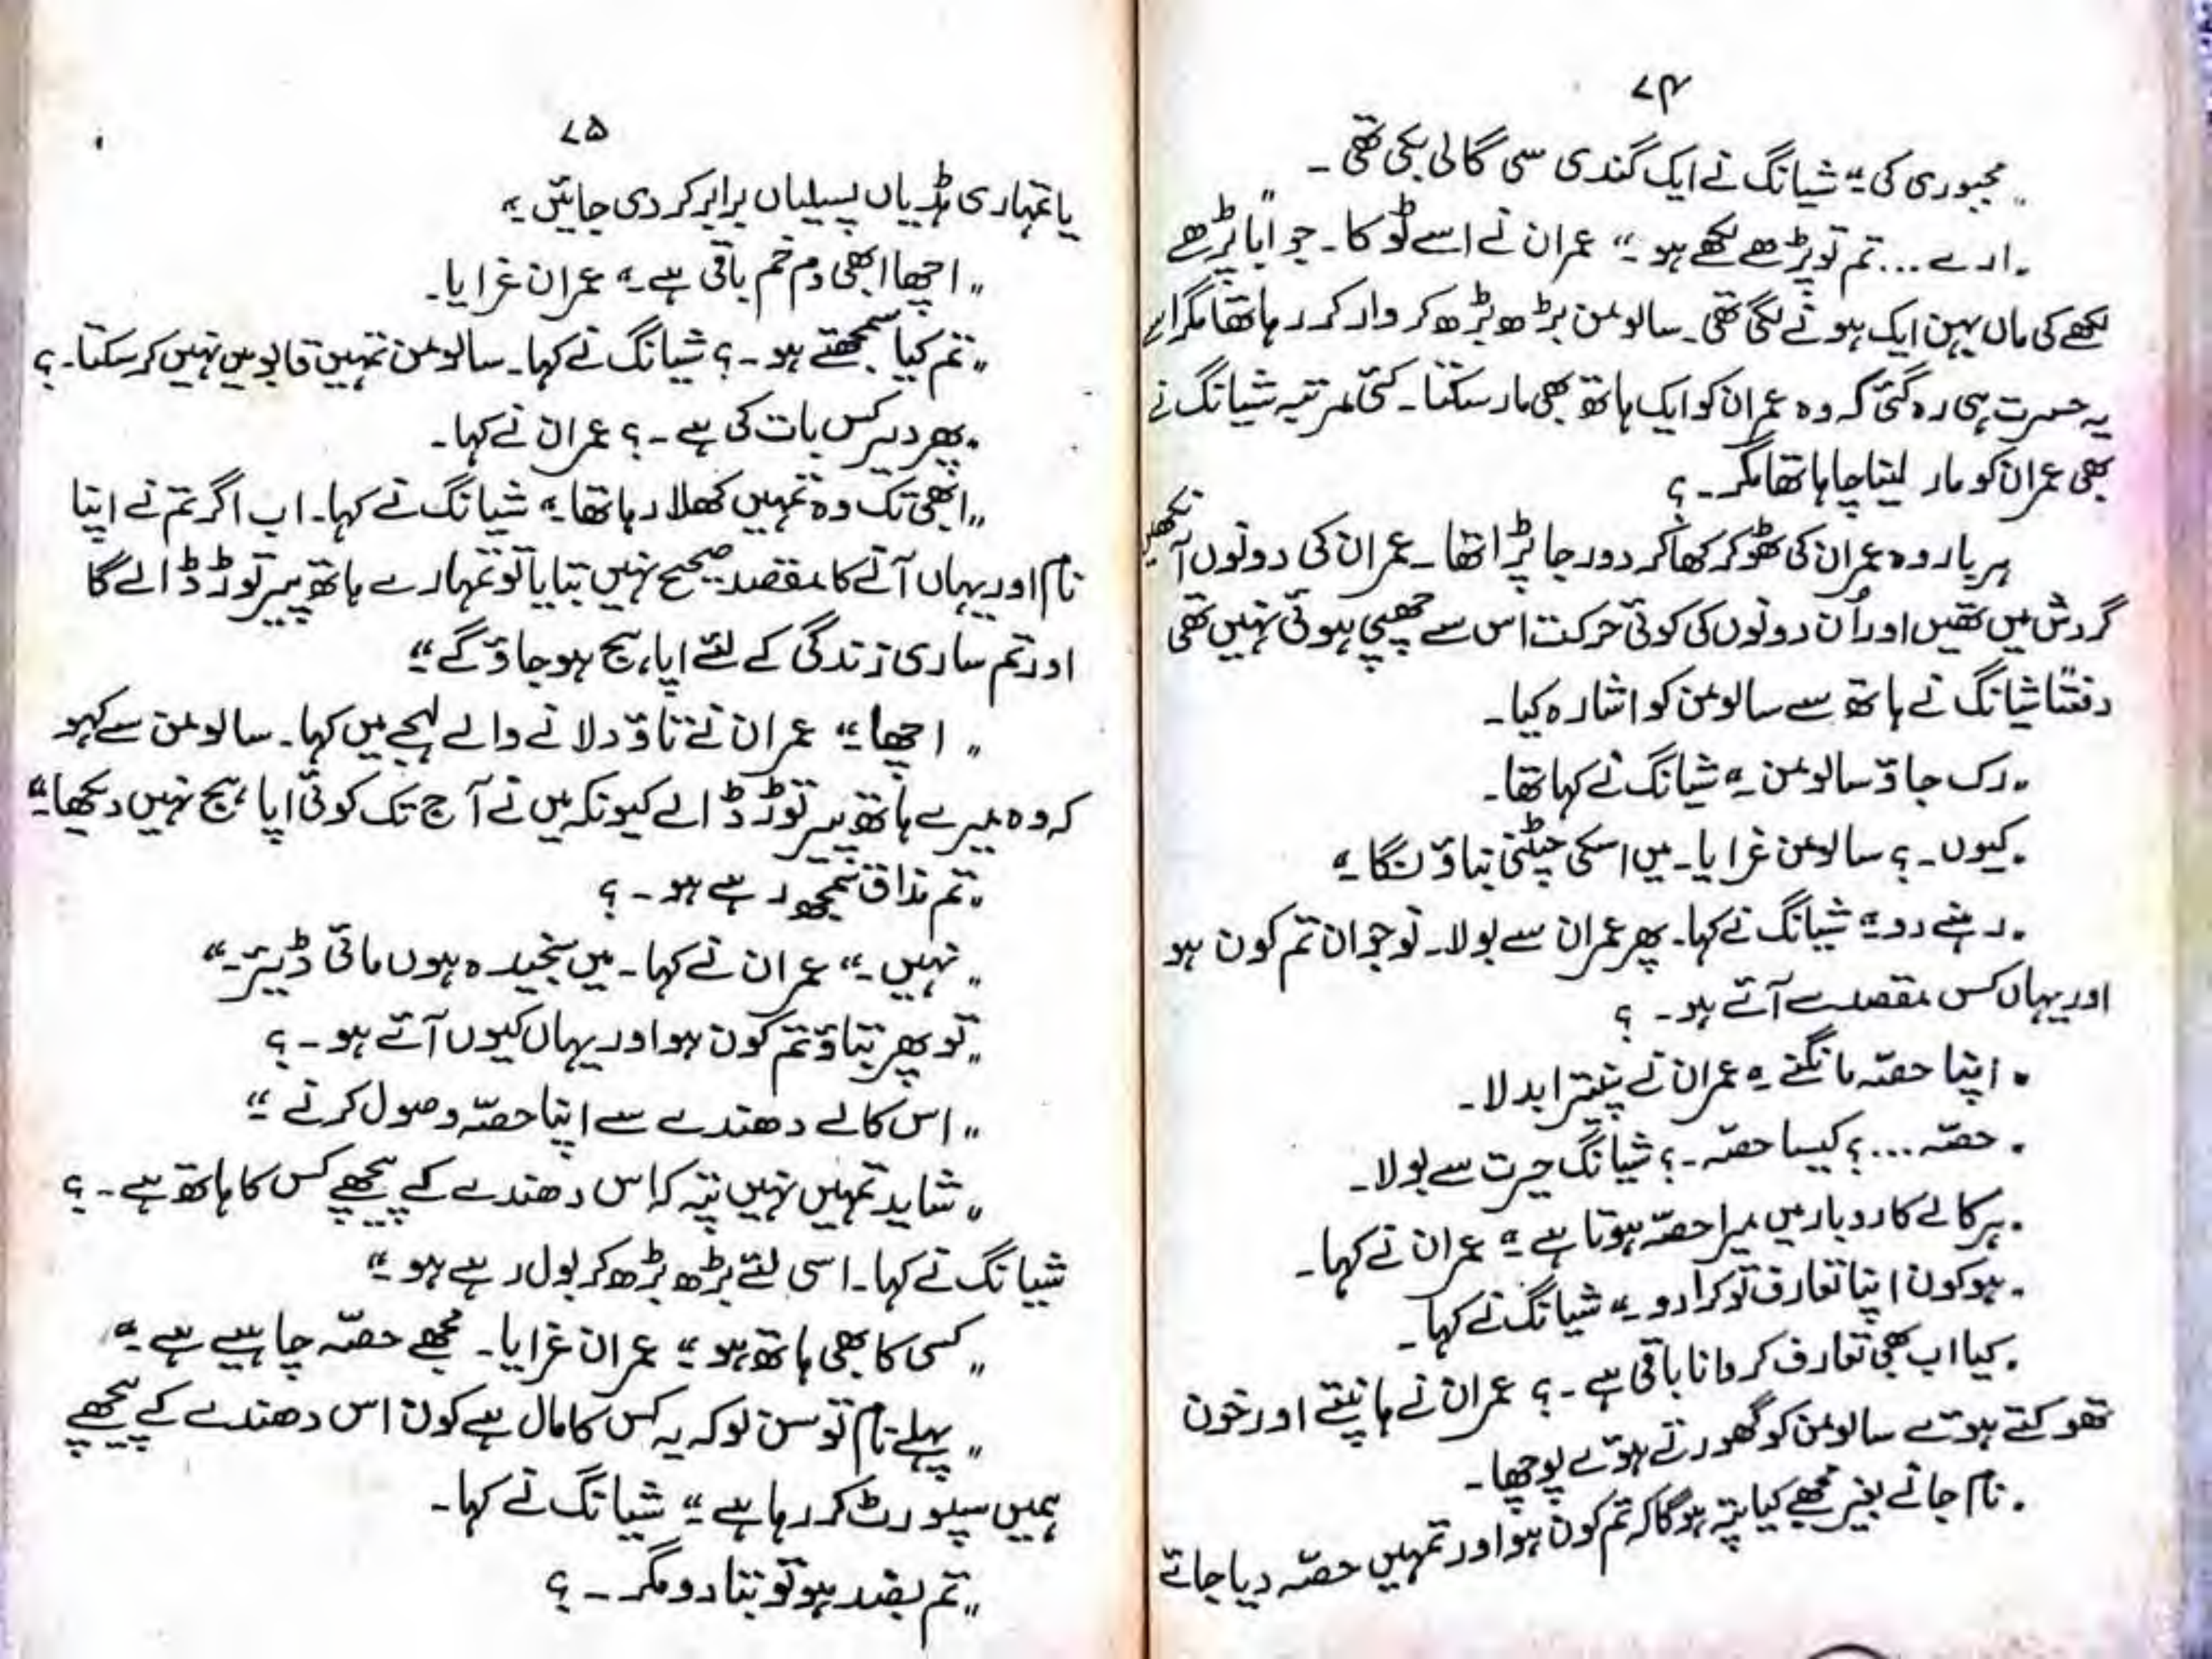 ۷۴
„ مجبوری کی ۔“ شیانگ نے ایک گندی سی گالی بکی تھی ۔
„ ارے ... تم تو پڑھے لکھے ہو ۔“ عمران نے اسے ٹوکا ۔ جواباً پڑھے
لکھے کی ماں بہن ایک ہونے لگی تھی ۔ سالومن بڑھ بڑھ کر وار کر رہا تھا مگر اسے
یہ حسرت ہی رہ گئی کہ وہ عمران کو ایک ہاتھ بھی مار سکتا ۔ کئی مرتبہ شیانگ نے
بھی عمران کو مار لینا چاہا تھا مگر ۔ ؟
ہر بار وہ عمران کی ٹھوکر کھا کر دور جا پڑا تھا ۔ عمران کی دونوں آنکھیں
گردش میں تھیں اور اُن دونوں کی کوئی حرکت اس سے چھپی ہوئی نہیں تھی
دفعتاً شیانگ نے ہاتھ سے سالومن کو اشارہ کیا ۔
„ رک جاؤ سالومن ۔“ شیانگ نے کہا تھا ۔
„ کیوں ۔ ؟ سالومن غرایا ۔ میں اسکی چٹنی بناؤنگا ۔“
„ رہنے دو ۔“ شیانگ نے کہا ۔ پھر عمران سے بولا ۔ نوجوان تم کون ہو
اور یہاں کس مقصد سے آئے ہو ۔ ؟
„ اپنا حصّہ مانگنے ۔“ عمران نے پینترا بدلا ۔
„ حصّہ ... ؟ کیسا حصّہ ۔ ؟ شیانگ حیرت سے بولا ۔
„ ہر کالے کاروبار میں میرا حصّہ ہوتا ہے ۔“ عمران نے کہا ۔
„ ہو کون اپنا تعارف تو کرا دو ۔“ شیانگ نے کہا ۔
„ کیا اب بھی تعارف کروانا باقی ہے ۔ ؟ عمران نے ہانپتے اور خون
تھوکتے ہوئے سالومن کو گھورتے ہوئے پوچھا ۔
„ نام جانے بغیر مجھے کیا پتہ ہوگا کہ تم کون ہو اور تمہیں حصّہ دیا جائے
۷۵
یا تمہاری ہڈیاں پسلیاں برابر کر دی جائیں ۔“
„ اچھا ابھی دم خم باقی ہے ۔“ عمران غرایا ۔
„ تم کیا سمجھتے ہو ۔ ؟ شیانگ نے کہا ۔ سالومن تمہیں قابو میں نہیں کر سکتا ۔ ؟
„ پھر دیر کس بات کی ہے ۔ ؟ عمران نے کہا ۔
„ ابھی تک وہ تمہیں کھلا رہا تھا ۔“ شیانگ نے کہا ۔ اب اگر تم نے اپنا
نام اور یہاں آنے کا مقصد صحیح نہیں بتایا تو تمہارے ہاتھ پیر توڑ ڈالے گا
اور تم ساری زندگی کے لئے اپاہج ہو جاؤ گے “
„ اچھا ۔“ عمران نے تاؤ دلانے والے لہجے میں کہا ۔ سالومن سے کہو
کہ وہ میرے ہاتھ پیر توڑ ڈالے کیونکہ میں نے آج تک کوئی اپاہج نہیں دیکھا ۔“
„ تم مذاق سمجھ رہے ہو ۔ ؟
„ نہیں ۔“ عمران نے کہا ۔ میں سنجیدہ ہوں مائی ڈیئر ۔“
„ تو پھر بتاؤ تم کون ہو اور یہاں کیوں آئے ہو ۔ ؟
„ اس کالے دھندے سے اپنا حصّہ وصول کرنے ۔“
„ شاید تمہیں نہیں پتہ کہ اس دھندے کے پیچھے کس کا ہاتھ ہے ۔ ؟
شیانگ نے کہا ۔ اسی لئے بڑھ بڑھ کر بول رہے ہو ۔“
„ کسی کا بھی ہاتھ ہو ۔“ عمران غرایا ۔ مجھے حصّہ چاہیے ہے ۔“
„ پہلے نام تو سن لو کہ یہ کس کا مال ہے کون اس دھندے کے پیچھے
ہمیں سپورٹ کر رہا ہے ۔“ شیانگ نے کہا ۔
„ تم بضد ہو تو بتا دو مگر ۔ ؟